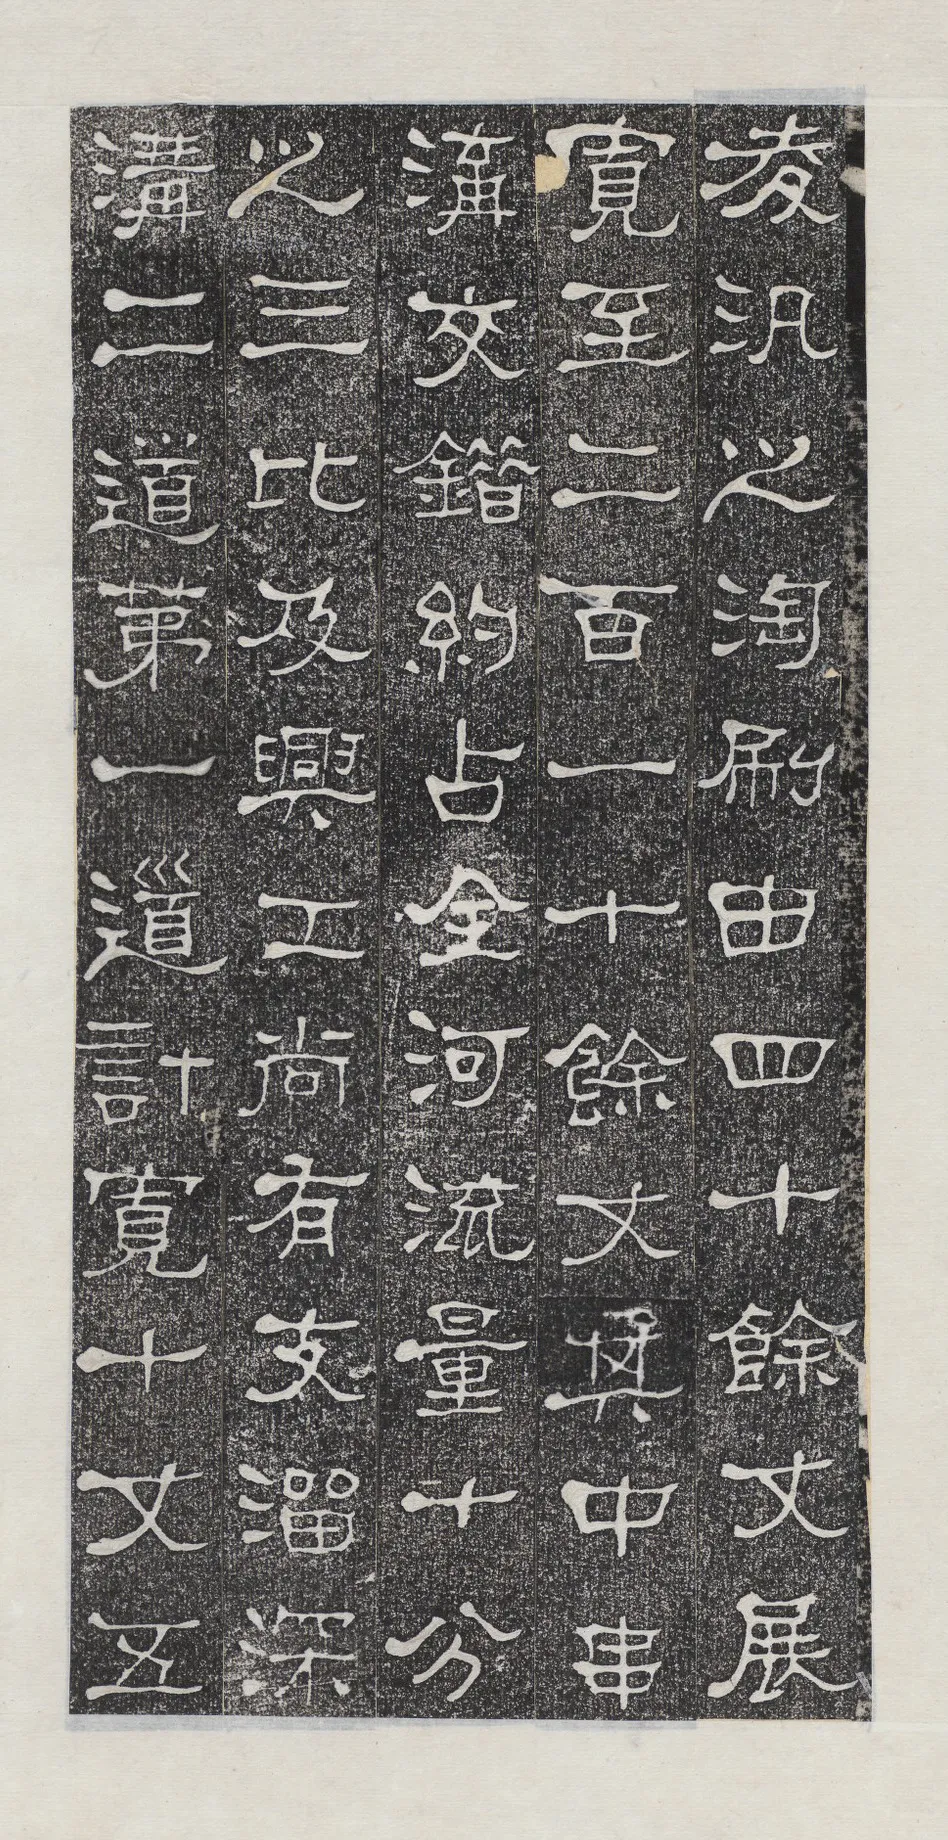 凌汛之淘刷由四十餘丈展
寬至二百一十餘丈其中串
溝交錯約占全河流量十分
之三比及興工尚有支溜深
溝二道第一道計寬十丈五